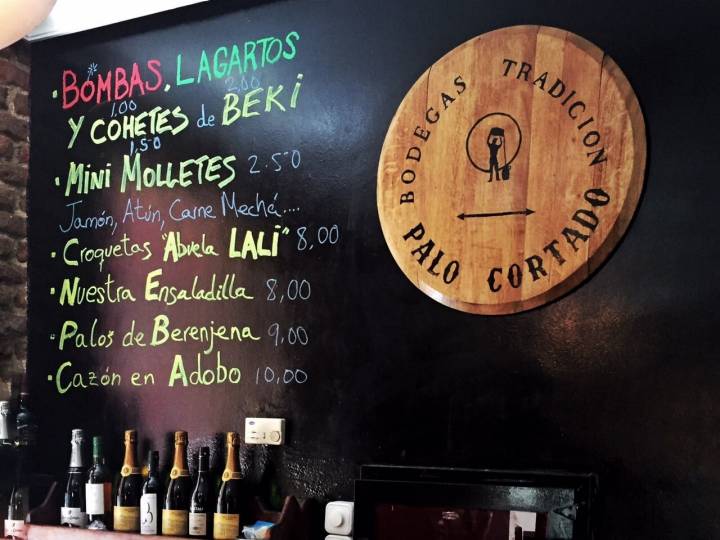 · BOMBAS, LAGARTOS
1,00 2,00
Y COHETES de BEKI
1,50
· MINI MOLLETES 2.50
Jamón, Atún, Carne Mechá....
· Croquetas "Abuela LALI" 8,00
· NUESTRA ENSALADILLA 8,00
· Palos de Berenjena 9,00
· Cazón en Adobo 10,00
BODEGAS TRADICION
PALO CORTADO